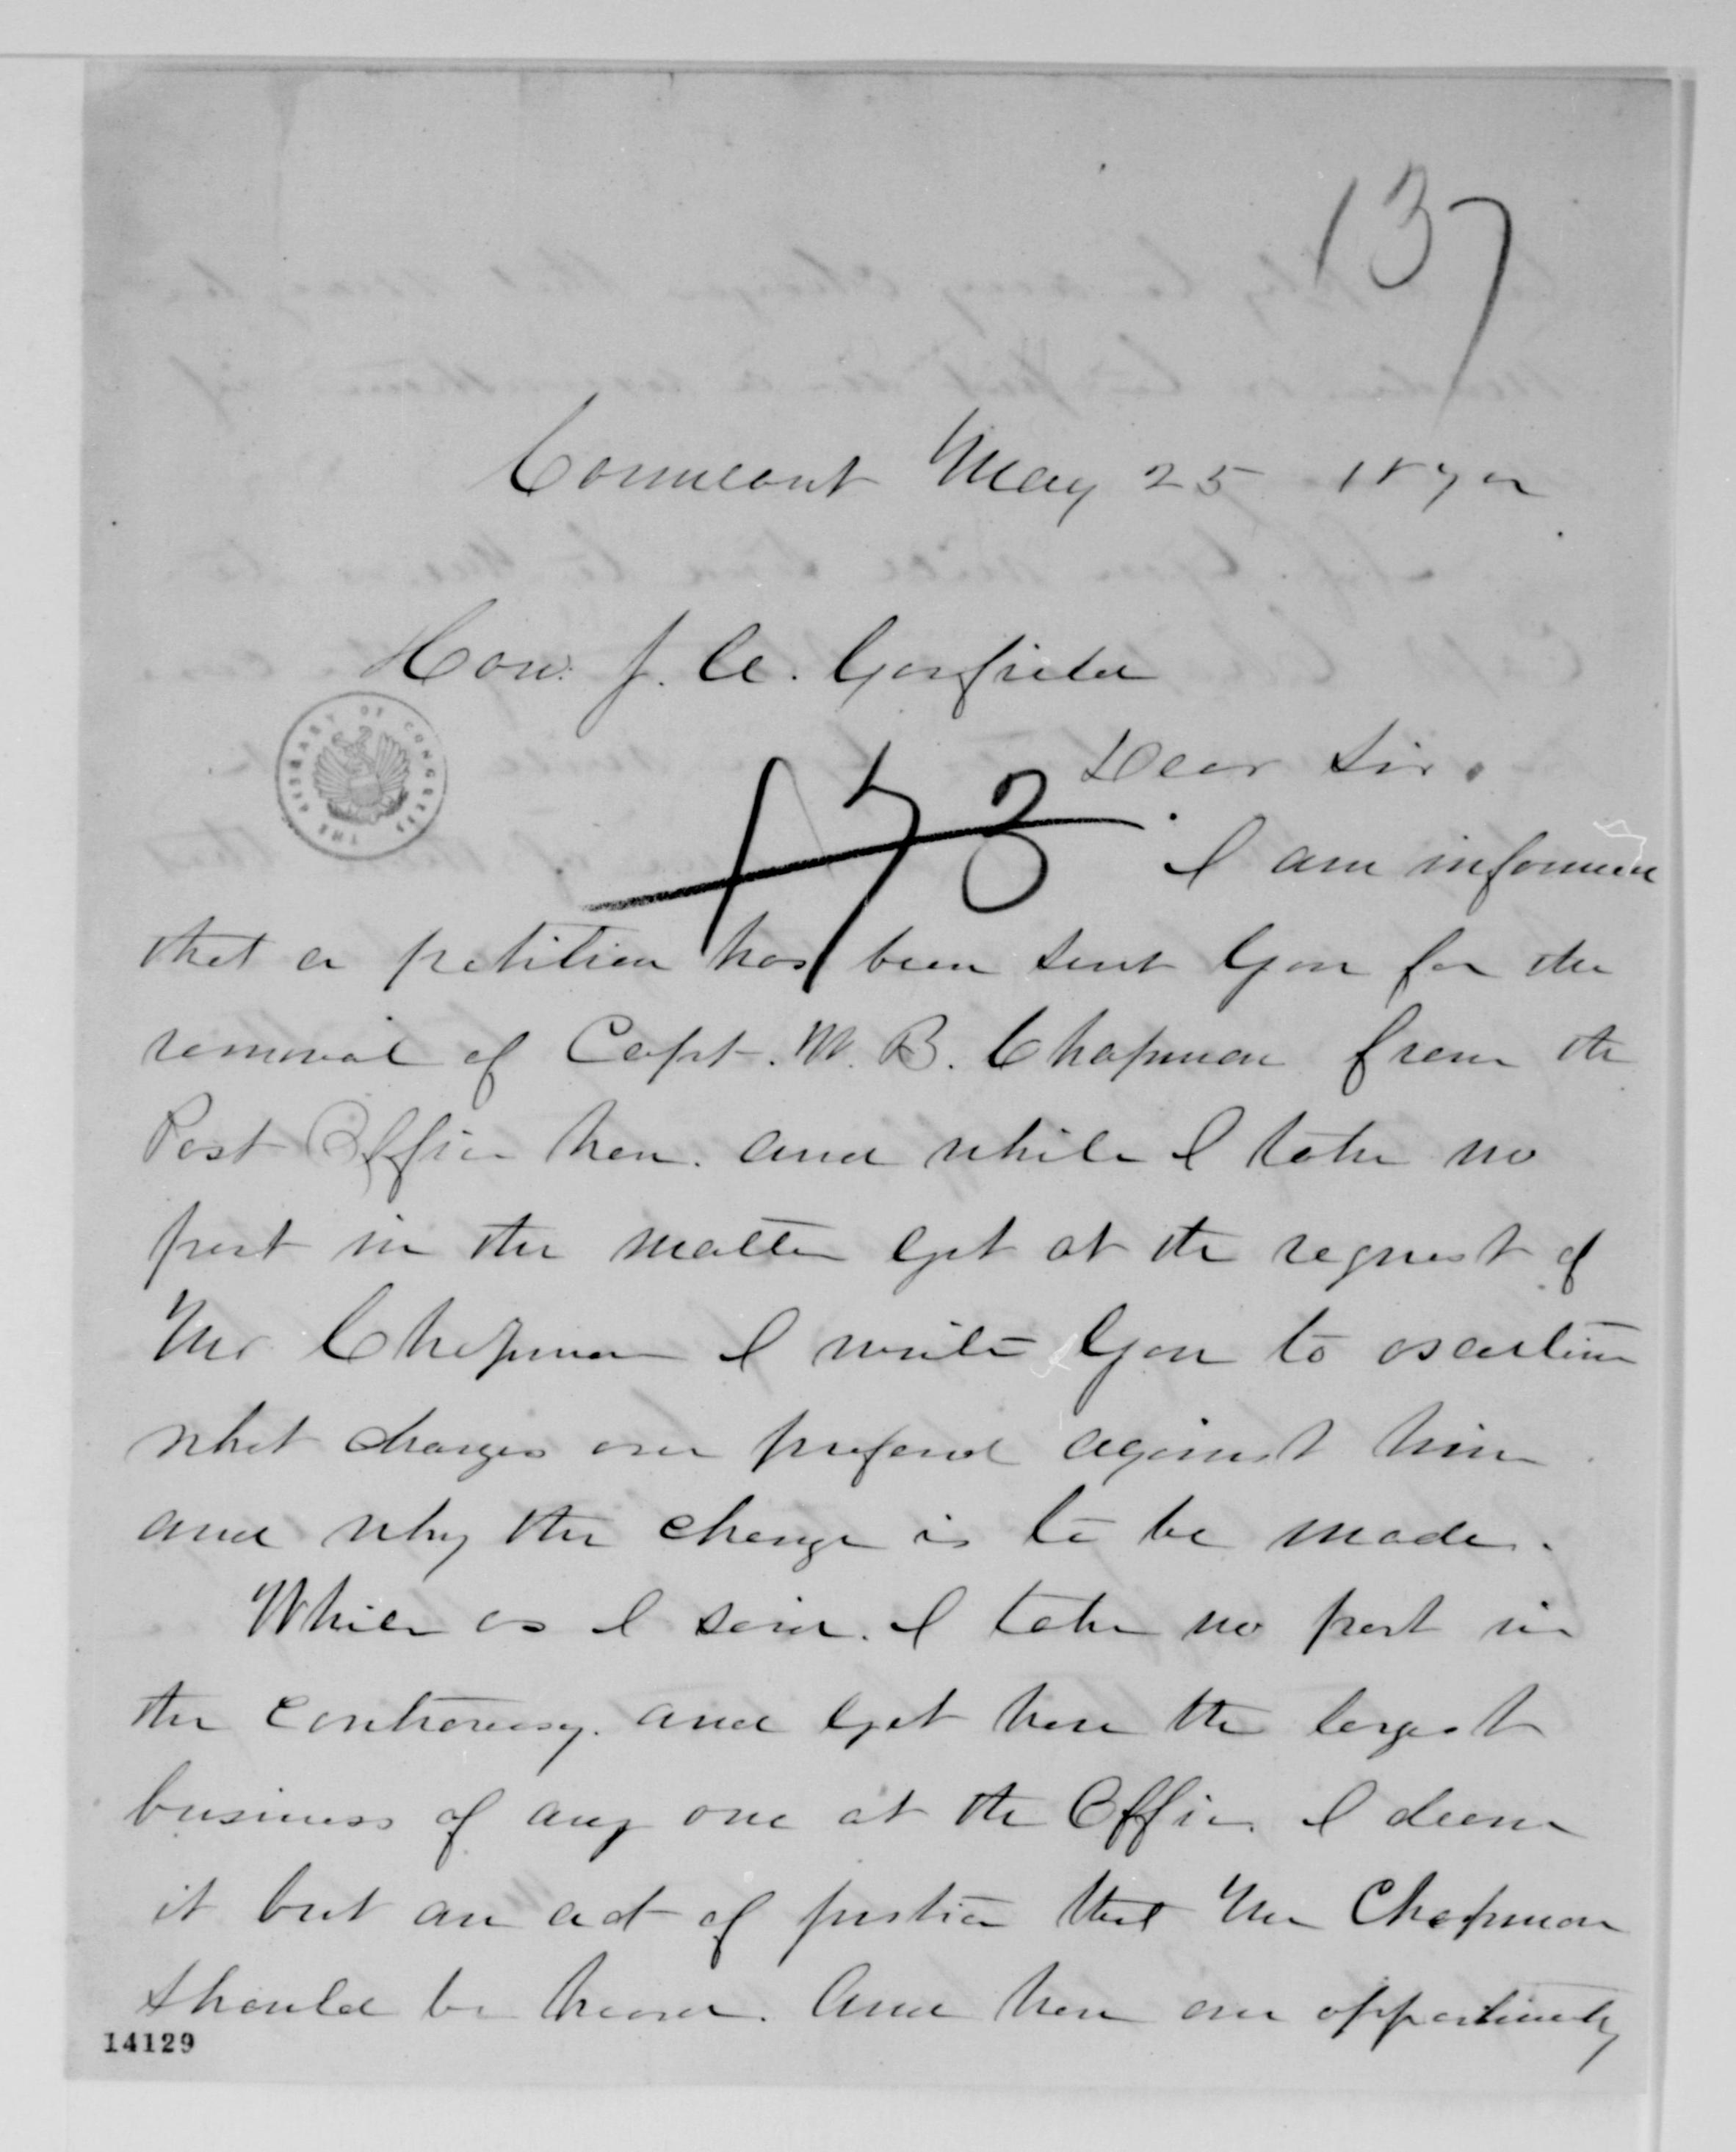 137
Conneaut May 25 1872
Hon. J. A. Garfield
Dear Sir.
THE LIBRARY OF CONGRESS
I am informed
that a petition has been sent you for the
removal of Capt. W. B. Chapman from the
Post Office here. and while I take no
part in the matter yet at the request of
Mr Chapman I write you to ascertain
what charges are prefered against him
and why the change is to be made.
While as I said. I take no part in
the controversy. and yet have the largest
business of any one at the Office I deem
it but an act of justice that Mr Chapman
should be heard. And have an opportunity
14129